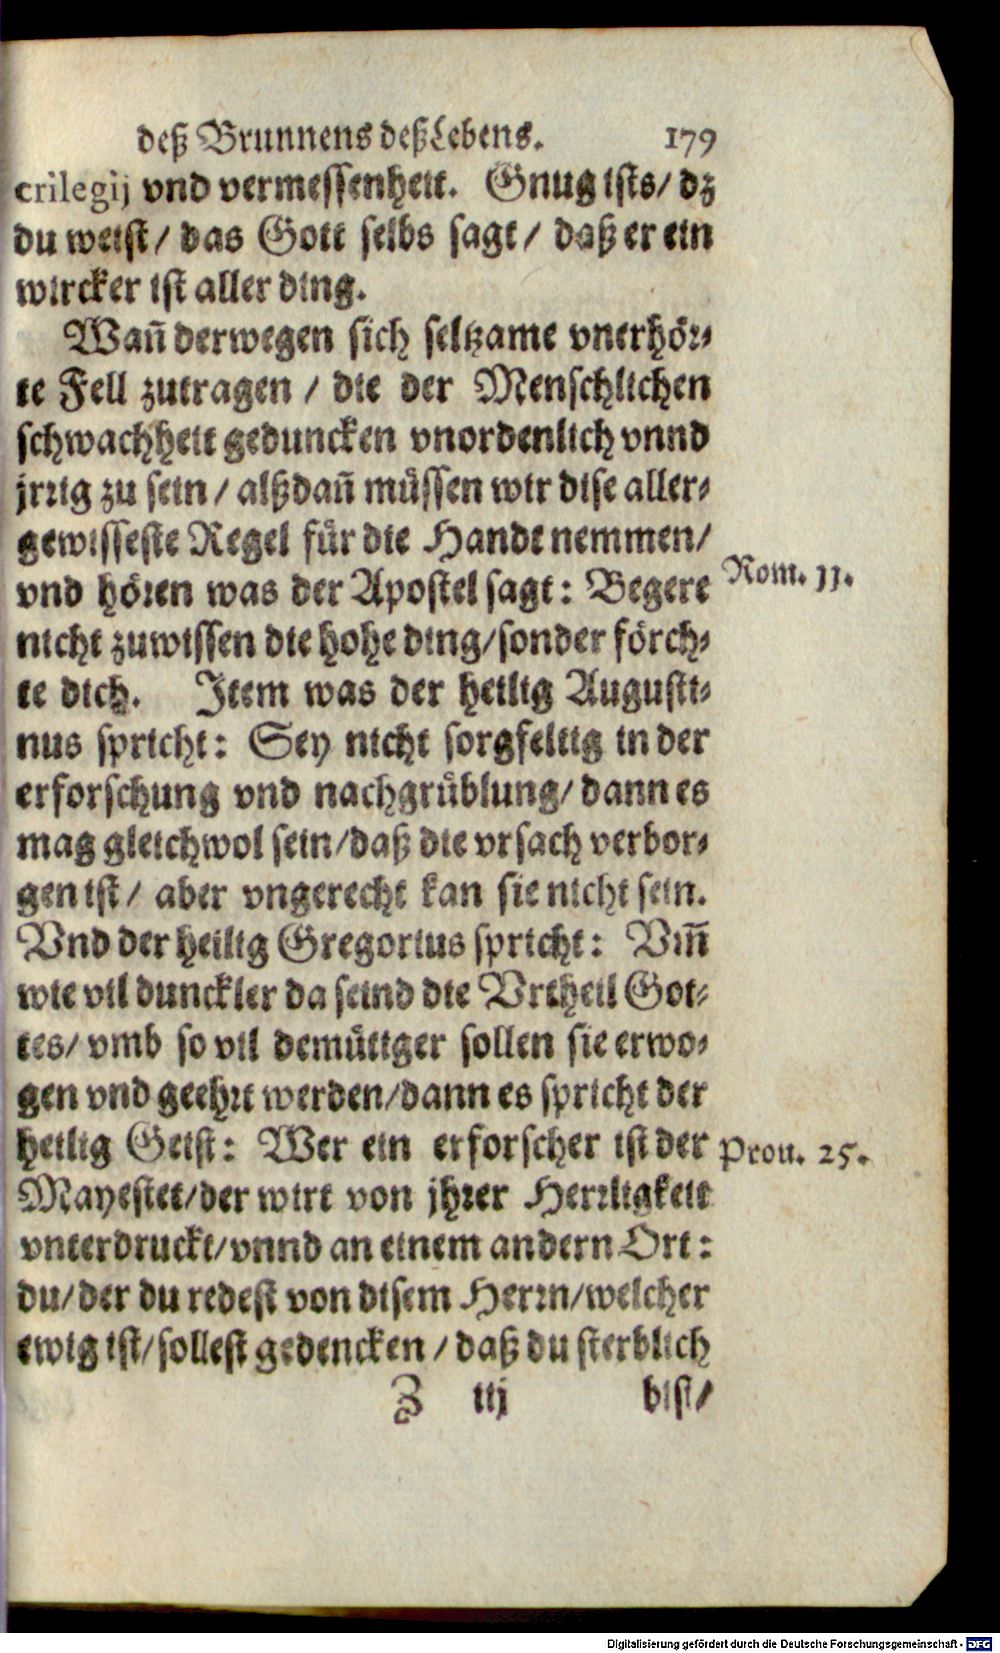 deß Brunnens deß Lebens. 179
crilegij vnd vermessenheit. Gnug ists/ dz
du weist/ das Gott selbs sagt/ daß er ein
wircker ist aller ding.
Wañ derwegen sich seltzame vnerhör-
te Fell zutragen/ die der Menschlichen
schwachheit geduncken vnordenlich vnnd
jrrig zu sein/ alßdañ müssen wir dise aller-
gewisseste Regel für die Handt nemmen/
vnd hören was der Apostel sagt: Begere
Rom. 11.
nicht zuwissen die hohe ding/ sonder förch-
te dich. Item was der heilig Augusti-
nus spricht: Sey nicht sorgfeltig in der
erforschung vnd nachgrüblung/ dann es
mag gleichwol sein/ daß die vrsach verbor-
gen ist/ aber vngerecht kan sie nicht sein.
Vnd der heilig Gregorius spricht: Vm̃
wie vil dunckler da seind die Vrtheil Got-
tes/ vmb so vil demütiger sollen sie erwo-
gen vnd geehrt werden/ dann es spricht der
heilig Geist: Wer ein erforscher ist der
Prou. 25.
Mayestet/ der wirt von jhrer Herrligkeit
vnterdruckt/ vnnd an einem andern Ort:
du/ der du redest von disem Herrn/ welcher
ewig ist/ sollest gedencken/ daß du sterblich
Z iij bist/
Digitalisierung gefördert durch die Deutsche Forschungsgemeinschaft - DFG